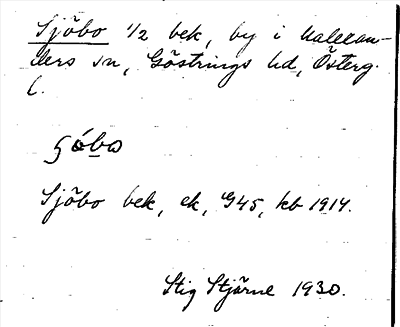 Sjöbo 1/2 bek, by i Kaleean-
ders sn, Göstrings hd, Österg.
l.
Sjöbo bek, ek, G45, kb 1914.
Stig Stjärne 1930.